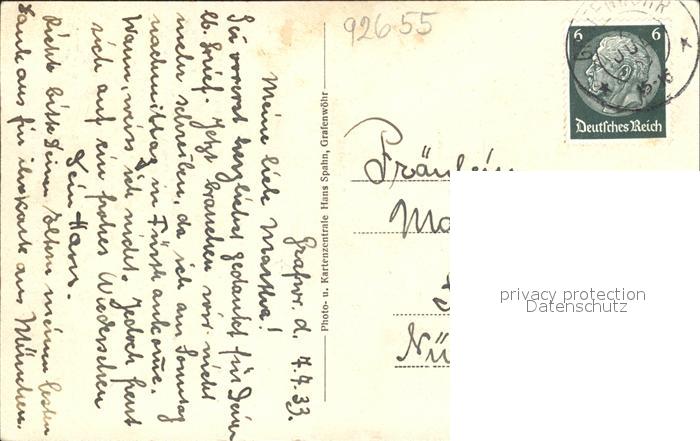 Grafwr. d. 7.7.33.
Meine liebe Martha!
Sei vorerst herzlichst gedankt für Dein
lb. Brief. Jetzt brauchen wir nicht
mehr schreiben, da ich am Sonntag
nachmittag in Fürth ankomme.
Wann, weiss ich nicht. Jedoch freut
sich auf ein frohes Wiedersehen
Dein Hans.
Richte bitte Deinen Eltern meinen besten
Dank aus für ihre Karte aus München.
Photo- u. Kartenzentrale Hans Spahn, Grafenwöhr
926-55
6 6
Deutsches Reich
Fräulein
Ma
Nü
privacy protection
Datenschutz